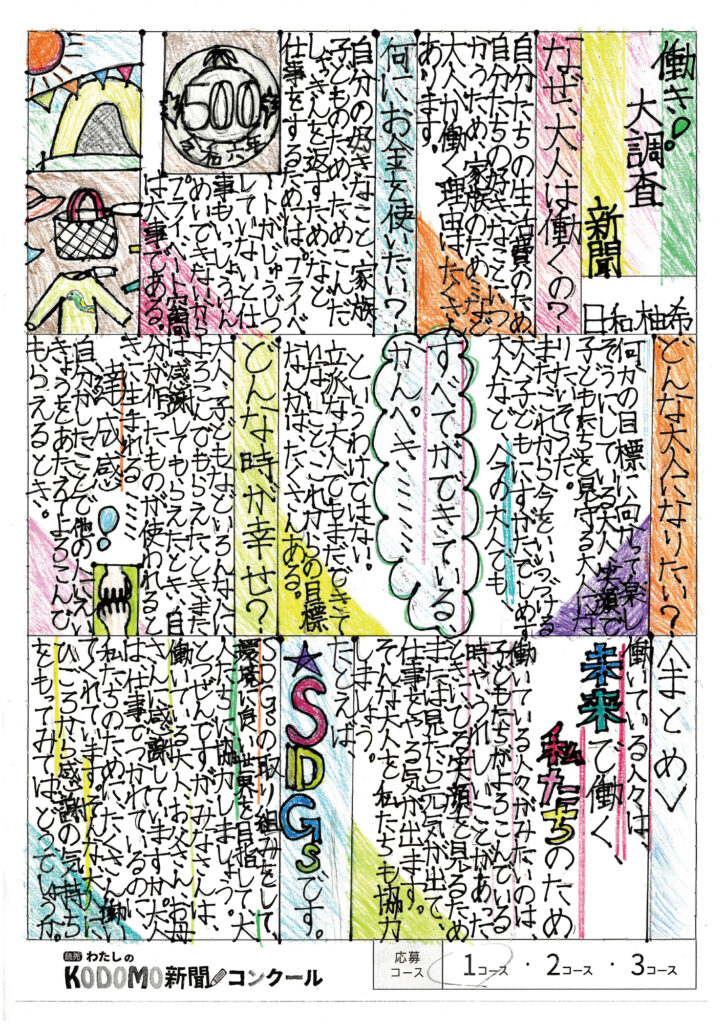 働き!
大調査
新聞
日和 柚希
なぜ、大人は働くの?
自分たちの生活費のため、
自分たちの好きなことにつ
かうため、家族のためなど
大人が働く理由はたくさん
あります。
何にお金を使いたい?
自分の好きなこと、家族、
子どものため、ためこんだ
しゃっきんを返すためなど
仕事をするためには、プライベ
ートがじゅうじつ
していないと仕
事もいっしょうけん
めいできないから
プライベート空間
は大事である。
500
令和六年
どんな大人になりたい?
何かの目標に向かって楽し
そうにしている大人、笑顔で
子どもたちを見守る大人にな
りたいそうだ。
まだこれから今をといつづける
大人、子どもにすがたでしめす
大人など、今の大人でも、
すべてができている、
かんぺきミミミ
というわけではない。
立派な大人でもまだできて
ないこと、これからの目標
なんかは、たくさんある。
どんな時が幸せ?
大人、子どもなどいろんな人に
よろこんでもらえたときまた
は感謝してもらえたとき、自
分が作ったものが使われると
き、生まれるミミミ
達成感!
自分がしたことで他の人にえい
きょうをあたえてよろこんで
もらえるとき。
〈まとめ♡
働いている人々は、
未来で働く、
私たちのため
働いている人々がみたいのは、
子どもたちがよろこんでいる
時やうれしいことがあった
ときにでる笑顔を見るため
または見たら元気が出て、
仕事をやる気が出ます。
そんな大人を私たちも協力
しましょう。
たとえば
★SDGsです。
SDGsの取り組みをして、
環境に良い世界を目指して大
人たちに協力しましょう。
とつぜんですがみなさんは、
働いている大人、お父さん、お母
さんに感謝していますか。大人
は、仕事でつかれているのに、
私たちのために、たくさん働い
てくれています。
ひごろから感謝の気持ち
をもってみてはどうでしょうか。
読売 わたしの
KODOMO新聞コンクール
応募
コース
1コース ・ 2コース ・ 3コース